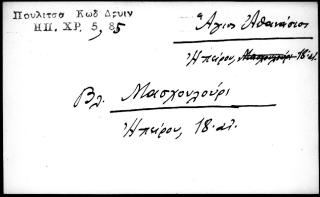 Πουλιτσα Κωδ Δρυιν
ΗΠ. ΧΡ. 5, 85
Ἅγιος Ἀθανάσιος
Ἠπείρου, Μασχουλούρι 18·αἰ.
Βλ. Μασχουλούρι
Ἠπείρου, 18·αἰ.